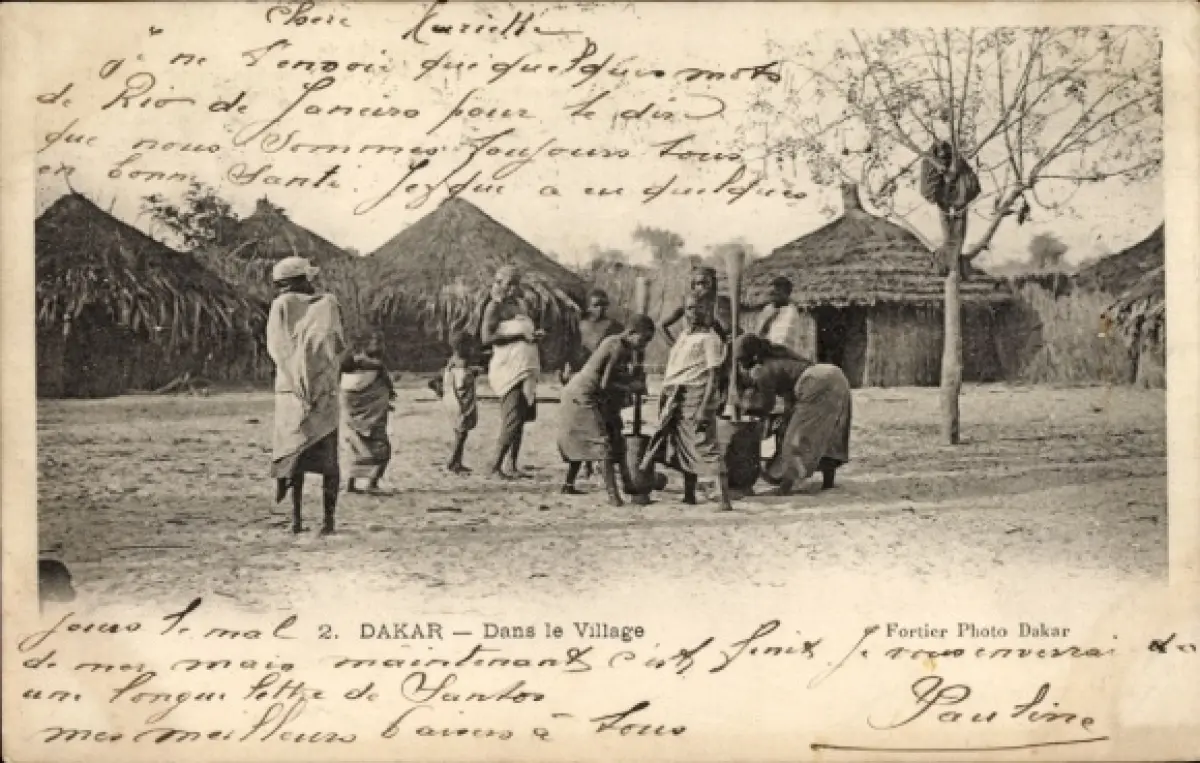 Chère Mariette
je ne t'envoie que quelques mots
de Rio de Janeiro pour te dire
que nous Sommes toujours tous
en bonne Santé. Jezque a eu quelques
jours le mal
2. DAKAR — Dans le Village
Fortier Photo Dakar
de mer mais maintenant c'est finit je vous enverrai de
une longue lettre de Santos
mes meilleurs baisers à tous
Pauline